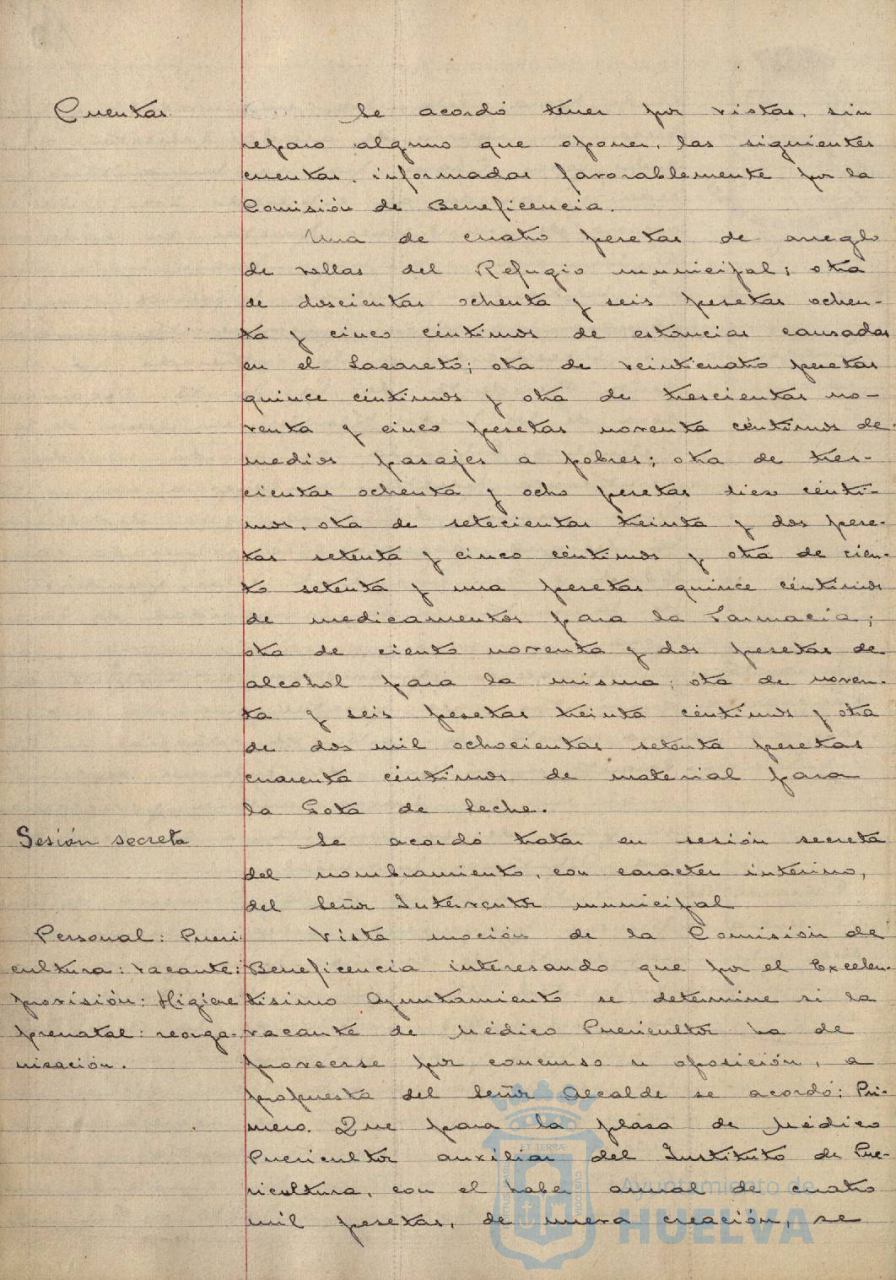 Cuentas.
Se acordó tener por vistas, sin
reparo alguno que oponer, las siguientes
cuentas, informadas favorablemente por la
Comisión de Beneficencia.
Una de cuatro pesetas de arreglo
de sellas del Refugio municipal; otra
de doscientas ochenta y seis pesetas ochen-
ta y cinco céntimos de estancias causadas
en el Lazareto; otra de veinticuatro pesetas
quince céntimos y otra de trescientas no-
venta y cinco pesetas noventa céntimos de
medios pasajes a pobres; otra de tres-
cientas ochenta y ocho pesetas diez cénti-
mos, otra de setecientas treinta y dos pese-
tas setenta y cinco céntimos y otra de cien-
to setenta y una pesetas quince céntimos
de medicamentos para la Farmacia;
otra de ciento noventa y dos pesetas de
alcohol para la misma; otra de noven-
ta y seis pesetas treinta céntimos y otra
de dos mil ochocientas setenta pesetas
cuarenta céntimos de material para
la Gota de Leche.
Sesión secreta
Se acordó tratar en sesión secreta
del nombramiento, con caracter interino,
del Señor Interventor municipal
Personal: Pueri-
cultura: vacante:
provisión: Higiene
prenatal: reorga-
nización.
Vista moción de la Comisión de
Beneficencia interesando que por el Excelen-
tísimo Ayuntamiento se determine si la
vacante de Médico Puericultor ha de
proveerse por concurso u oposición, a
propuesta del Señor Alcalde se acordó: Pri-
mero. Que para la plaza de Médico
Puericultor auxiliar del Instituto de Pue-
ricultura, con el haber anual de cuatro
mil pesetas, de nueva creación, se
Ayuntamiento de
HUELVA